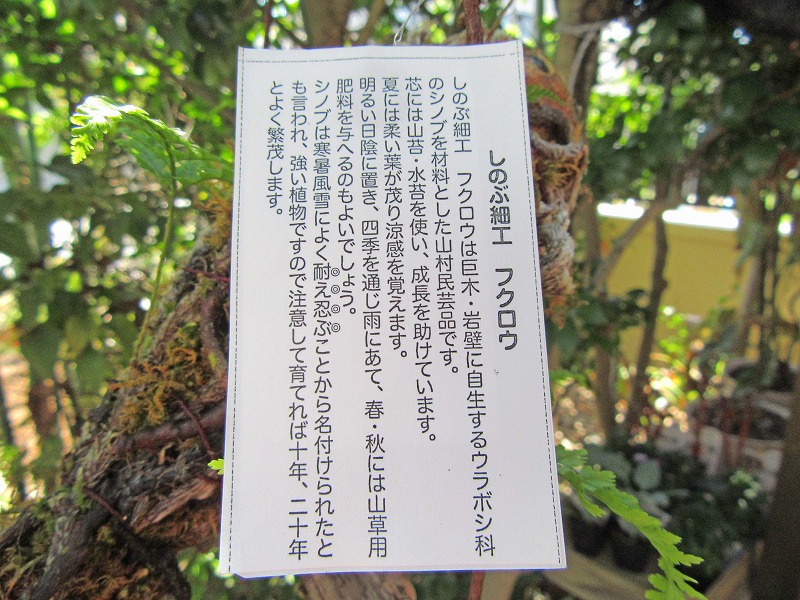 しのぶ細工　フクロウ
しのぶ細工　フクロウは巨木・岩壁に自生するウラボシ科
のシノブを材料とした山村民芸品です。
芯には山苔・水苔を使い、成長を助けています。
夏には柔い葉が茂り涼感を覚えます。
明るい日陰に置き、四季を通じ雨にあて、春・秋には山草用
肥料を与へるのもよいでしょう。
シノブは寒暑風雪によく耐え忍ぶことから名付けられたと
も言われ、強い植物ですので注意して育てれば十年、二十年
とよく繁茂します。